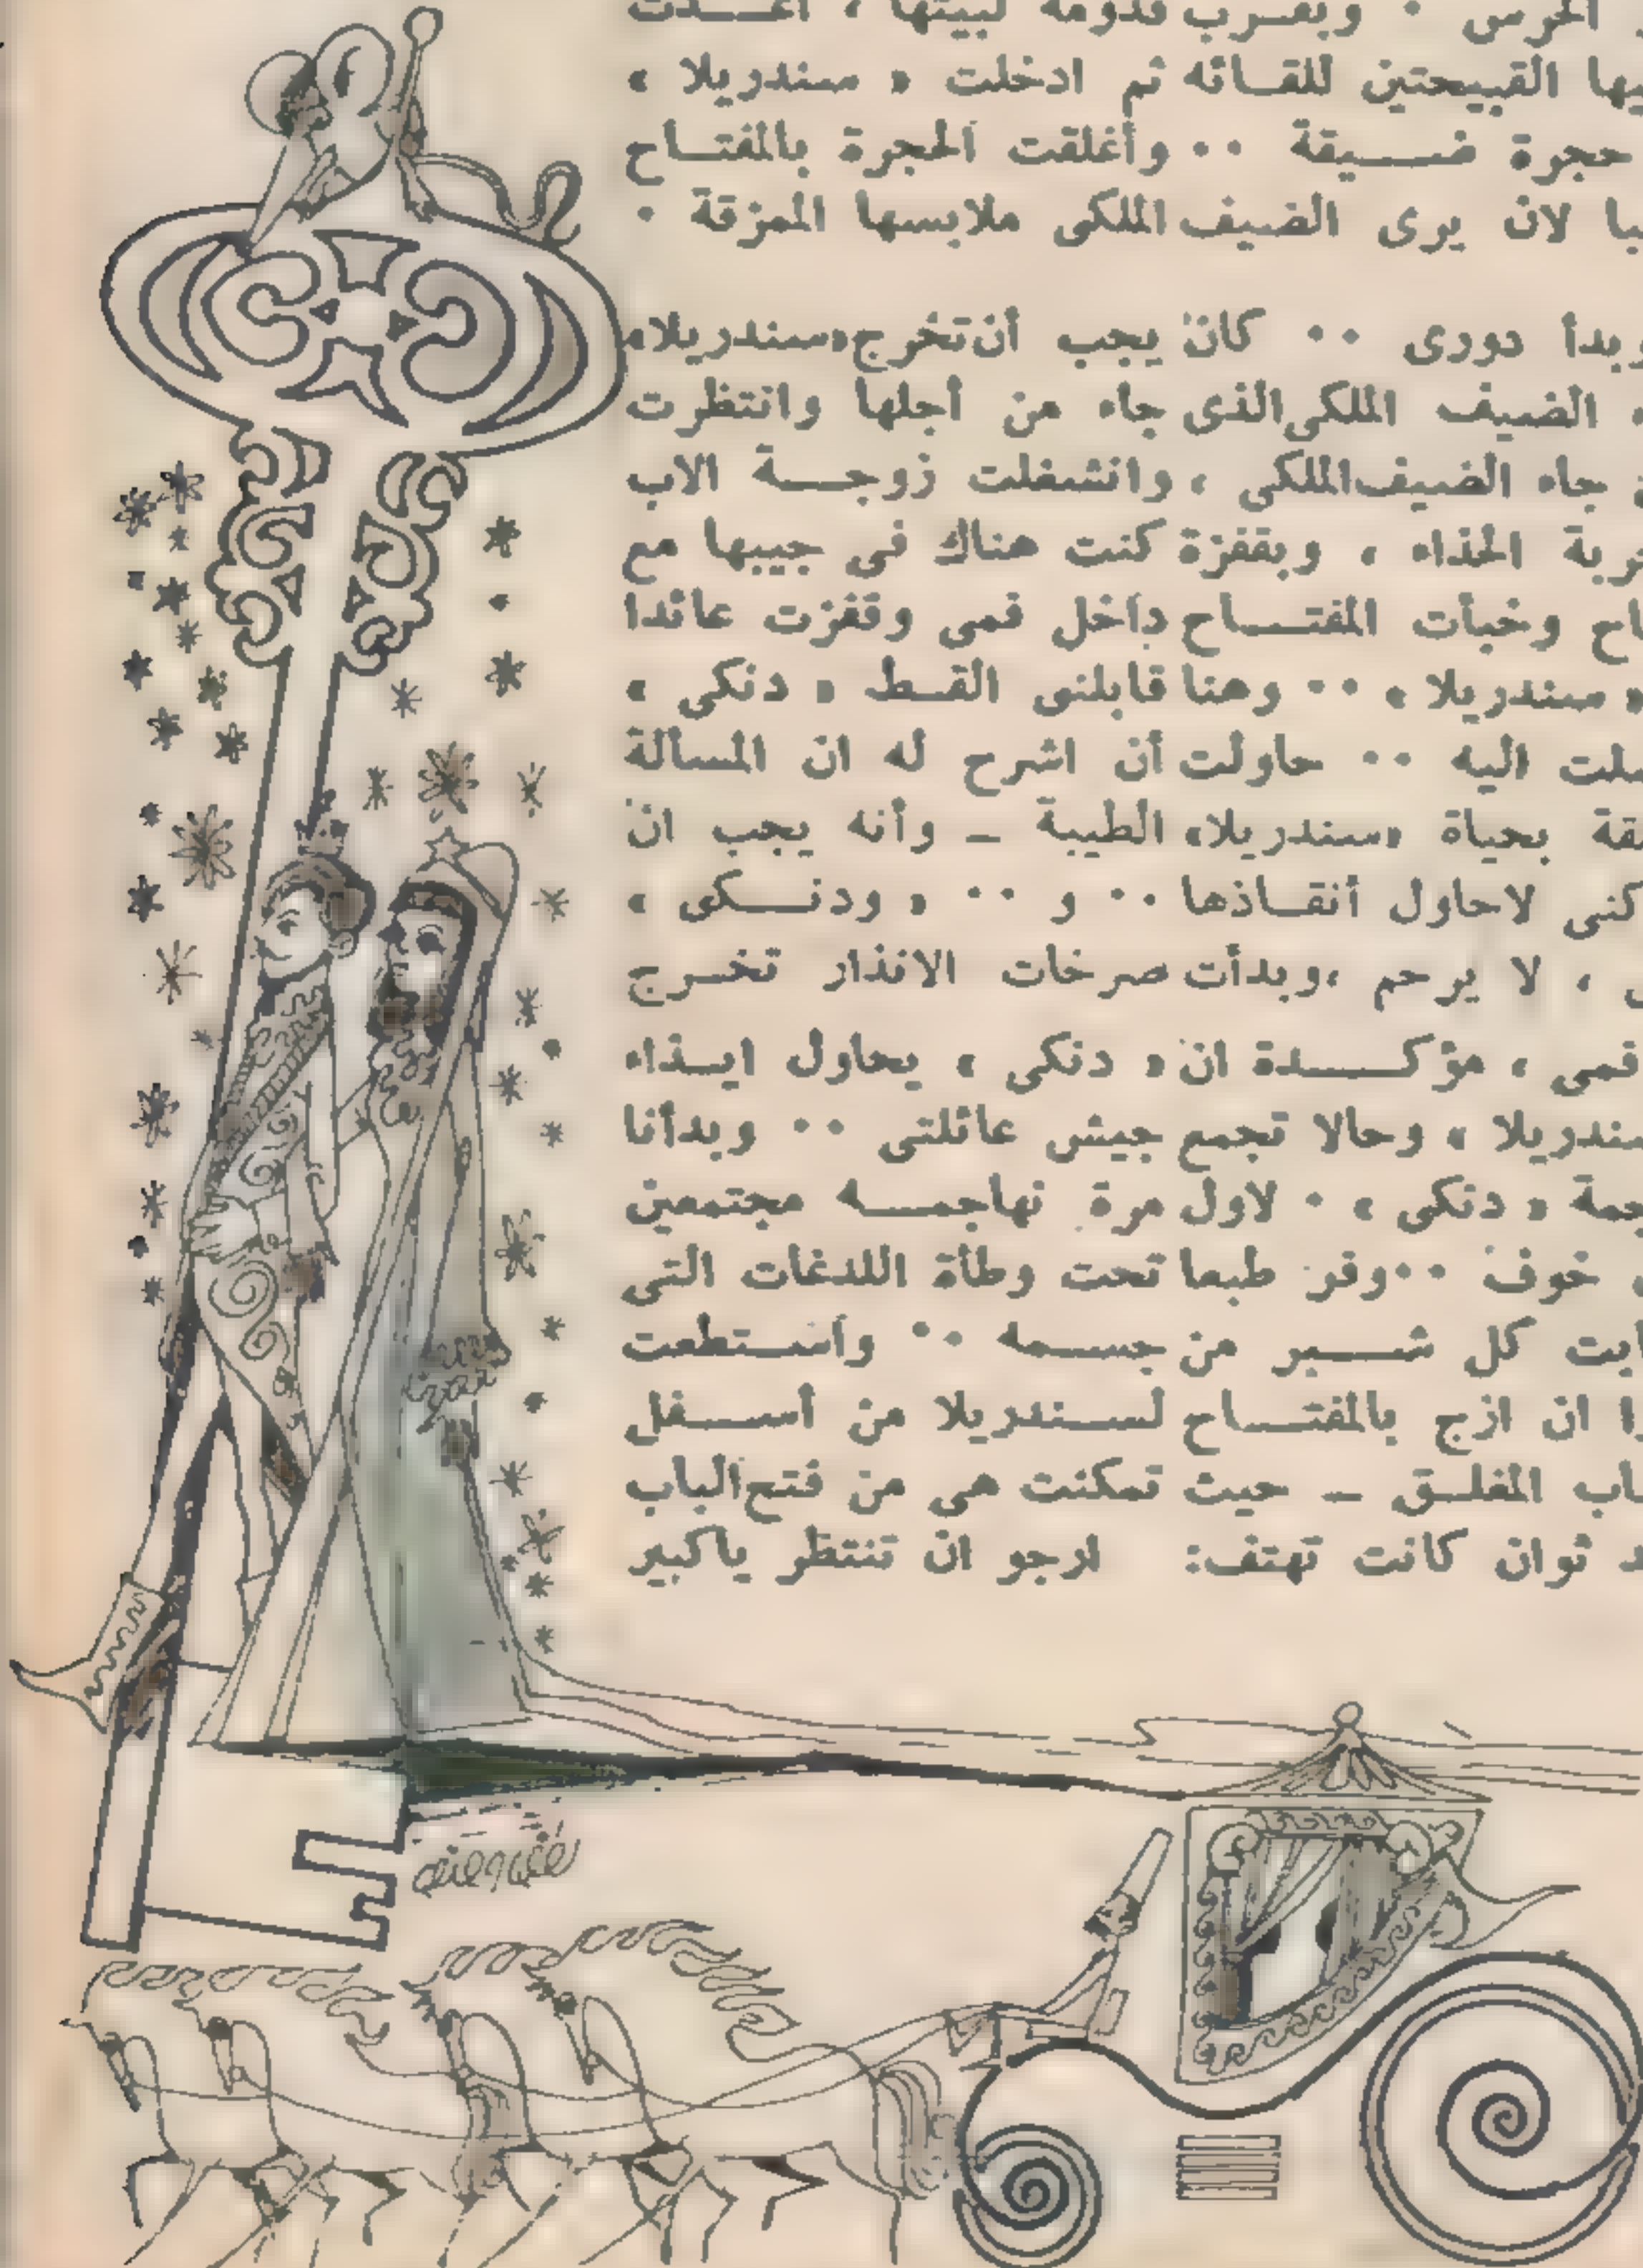 الحرس ٠ وبقرب قدومه لبيتها ، أعـــدت
القبيحتين للقــائه ثم ادخلت « سندريلا »
حجرة ضـــــيقة ٠٠ وأغلقت الحجرة بالمفتــاح
لان يرى الضيف الملكى ملابسها الممزقة ٠
وبدأ دورى ٠٠ كان يجب أن تخرج «سندريلا»
الضيف الملكى الذى جاء من أجلها وانتظرت
جاء الضيف الملكى ، وانشغلت زوجـــة الاب
الحذاء ، وبقفزة كنت هناك فى جيبها مع
وخبأت المفتـــاح داخل فمى وقفزت عائدا
« سندريلا » ٠٠ وهنا قابلنى القــط « دنكى »
اليه ٠٠ حاولت أن اشرح له ان المسألة
بحياة «سندريلا» الطيبة ـ وأنه يجب ان
لاحاول أنقــاذها ٠٠ و ٠٠ « ودنـــكى »
، لا يرحم ،وبدأت صرخات الانذار تخــرج
فمى ، مؤكـــــدة ان « دنكى » يحاول ايــذاء
وحالا تجمع جيش عائلتى ٠٠ وبدأنا
« دنكى » ٠ لاول مرة نهاجمـــه مجتمعين
خوف ٠٠ وفر طبعا تحت وطأة اللدغات التى
كل شـــبر من جســـمه ٠٠ وأســـتطعت
ان ازج بالمفتـــاح لســـندريلا من أســـفل
المغلــق ـ حيث تمكنت هى من فتح الباب
ثوان كانت تهتف: ارجو ان تنتظر ياكبير